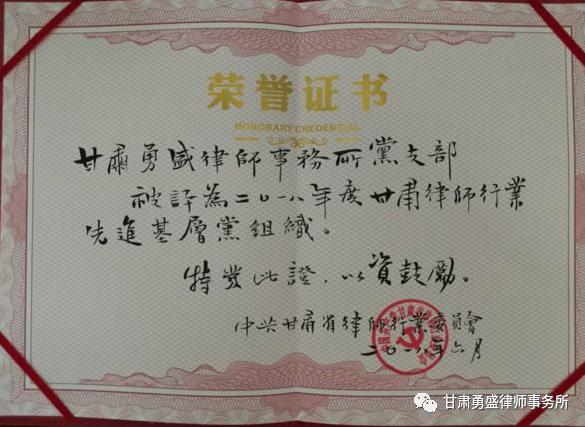 荣誉证书
HONORARY CREDENTIAL
甘肅勇盛律師事務所黨支部
被評為二〇一八年度甘肅律師行業
先進基層黨組織。
特发此證，以資鼓勵。
中共甘肅省律師行業委員會
二〇一八年六月
甘肃勇盛律师事务所